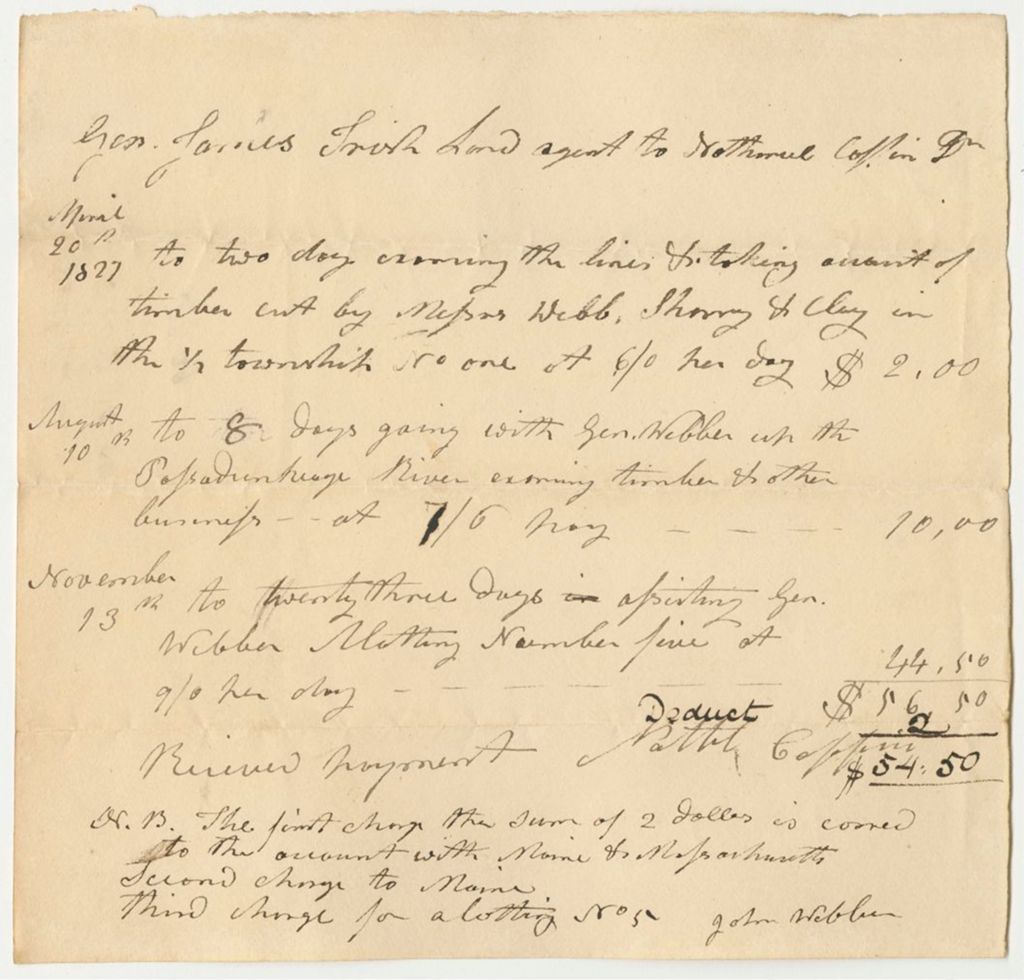 Gen. James Irish Land agent to Nathaniel Coffin Dr
April
20th
1827 to two day examining the lines & taking account of
timber cut by Messrs Webb, Shorey & Clay in
the 1/2 township No one at 6/0 per day $ 2.00
August
10th to 8 days going with Gen. Webber up the
Passadunkeage River examining timber & other
business - - at 7/6 pr day - - - - 10,00
November
13th to twenty three days in assisting Gen.
Webber Alotting Number five at
9/0 per day - - - - - - 44.50
$ 56,50
Deduct 2
Received payment Nathl Coffin $54.50
N. B. The first charge the sum of 2 dollars is carred
to the account with Maine & Massachusetts
Second charge to Maine
third charge for alotting No 5 John Webber